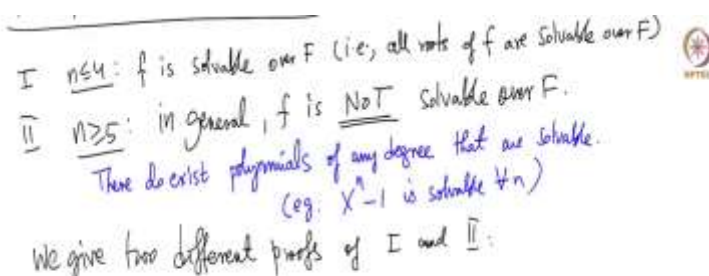 I n≤4: f is solvable over F (i.e., all roots of f are solvable over F)
II n≥5: in general, f is NOT solvable over F.
There do exist polynomials of any degree that are solvable.
(eg. Xⁿ-1 is solvable ∀n)
We give two different proofs of I and II:
NPTEL